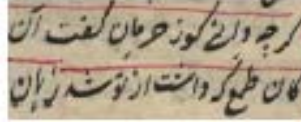 گر چه دانی کوز حرمان گفت آن
کان طمع کرد است از تو شد زیان